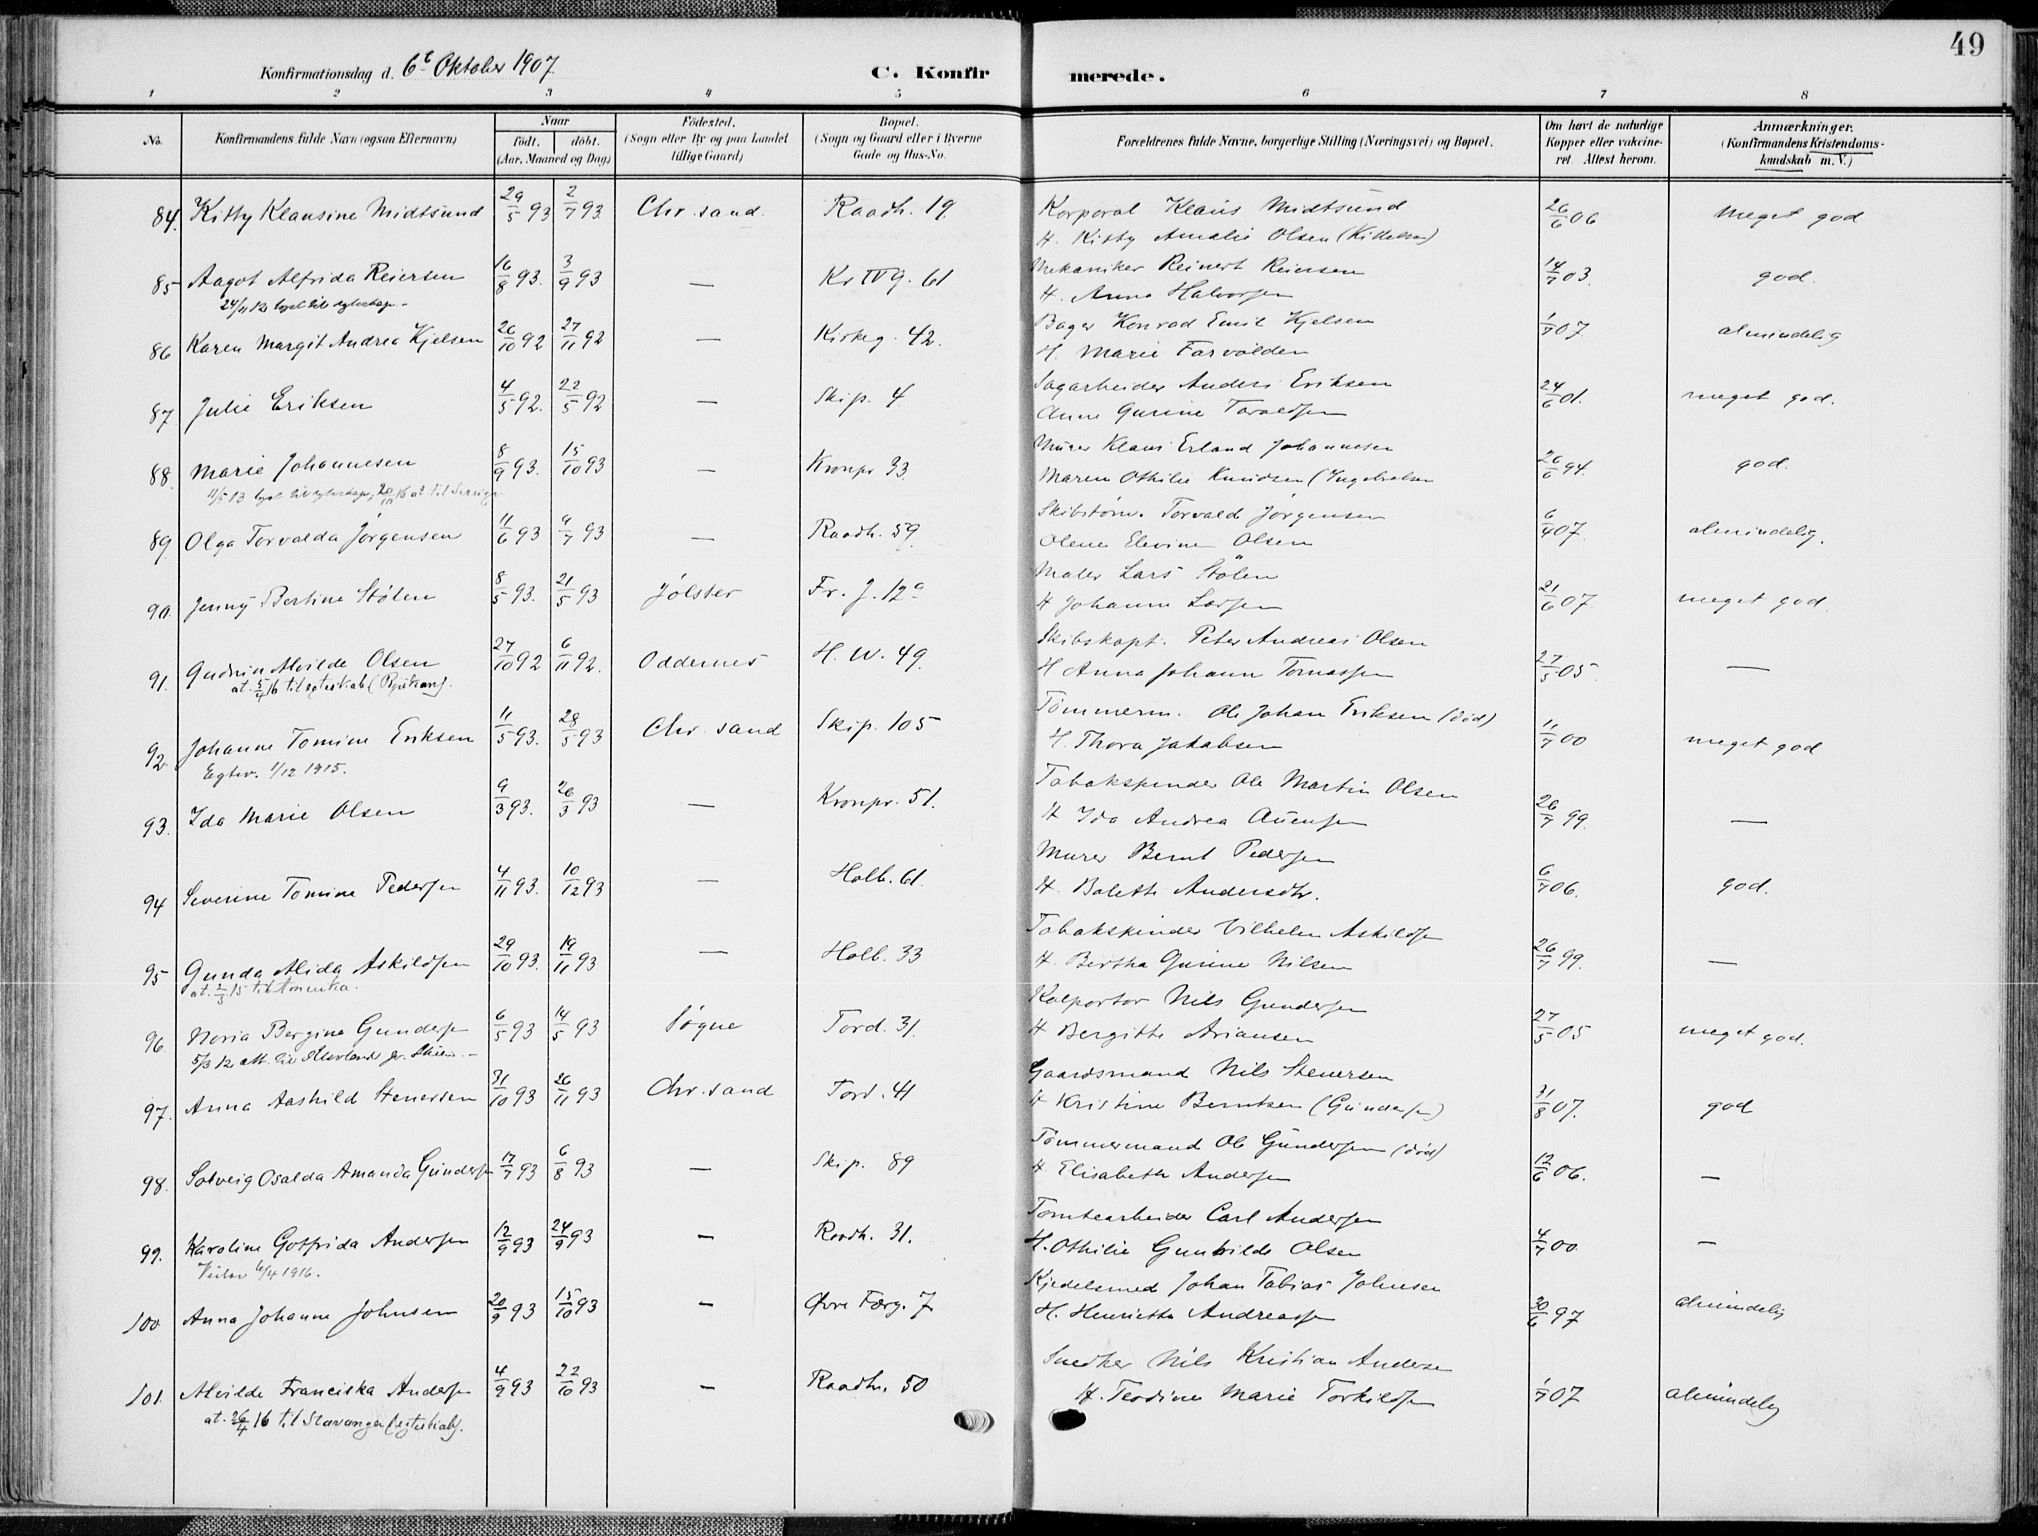 49
Konfirmationsdag d. 6t Oktober 1907 C. Konfir merede.
1 2 3 4 5 6 7 8
No. Konfirmandens fulde Navn (ogsaa Efternavn) Naar født. døbt. (Aar, Maaned og Dag) Fødested. (Sogn eller By og paa Landet tillige Gaard) Bopæl. (Sogn og Gaard eller i Byerne Gade og Hus-No. Forældrenes fulde Navne, borgerlige Stilling (Næringsvei) og Bopæl. Om havt de naturlige Kopper eller vakcineret. Attest herom. Anmærkninger. (Konfirmandens Kristendomskundskab m. V.)
84. Kitty Klausine Midtsund 29/5 93 2/7 93 Chr.sand. Raadh. 19 Korporal Klaus Midtsund 26/6 06 Meget god
H. Kitty Amalie Olsen (Kittelsen)
85 Aagot Alfrida Reiersen 16/8 93. 3/9 93 — Kr IV g. 61 Mekaniker Reinert Reiersen 14/7 03. god.
24/11 12 lyst til egteskap. H. Anna Halvorsen
86 Karen Margit Andrea Kjelsen 26/10 92 27/11 92 — Kirkeg. 42. Bager Konrad Emil Kjelsen 1/7 07. almindelig
H. Marie Farvolden
87 Julie Eriksen 4/5 92. 22/5 92 — Skip. 4 Sagarbeider Anders Eriksen 24/6 01. meget god.
Anne Gurine Torvaldsen
88. Marie Johannesen 8/9 93. 15/10 93 — Kronpr 33 Murer Klaus Erland Johannesen 26/6 94. god.
11/5 13 lyst til egteskap, 20/10 16 at til Sverige Maren Othilie Knudsen (Ingebretsen
89. Olga Torvalda Jörgensen 11/6 93 9/7 93 — Raadh. 59. Skibstøm. Torvald Jörgensen 6/4 07. almindelig.
Olene Elevine Olsen
90. Jenny Bertine Stölen 8/5 93. 21/5 93 Jölster Fr. J. 12a Maler Lars Stölen 21/6 07. meget god.
H Johanne Larsen
91. Gudrun Alvilde Olsen 27/10 92 6/11 92. Oddernes H. W. 49. Skibskapt. Peter Andreas Olsen 27/5 05. —
at. 5/4 16 til egteskab (Rjukan). H Anna Johanne Tomassen
92. Johanne Tomine Eriksen 11/5 93. 28/5 93 Chr.sand Skip. 105 Tömmerm. Ole Johan Eriksen (död) 11/7 00 meget god
Egtev. 1/12 1915. H. Thora Jakobsen
93. Ida Marie Olsen 9/3 93. 26/3 93 — Kronpr. 51. Tobakspinder Ole Martin Olsen 26/7 99. —
H Ida Andrea Auensen
94 Severine Tomine Pedersen 4/11 93. 10/12 93 — Holb. 61. Murer Bernt Pedersen 6/7 06. god.
H. Bolette Andersdtr.
95 Gunda Alida Askildsen 29/10 93. 19/11 93 — Holb. 33 Tobakspinder Vilhelm Askildsen 26/7 99. —
at. 2/3 15 til Amerika. H. Bertha Gurine Nilsen
96. Noria Bergine Gundersen 6/5 93 14/5 93 Søgne Tord. 31. Kolportør Nils Gundersen 27/5 05 meget god.
5/3 12 att. H Bergitte Ariansen
97. Anna Aashild Stenersen 31/10 93 26/11 93 Chr.sand Tord. 41 Gaardsmand Nils Stenersen 31/8 07. god
H Kristine Berntsen (Gundersen)
98. Solveig Osalda Amanda Gündersen 17/7 93 6/8 93 — Skip. 89 Tömmermand Ole Gündersen (död) 12/6 06. —
H Elisabeth Andersen
99. Karoline Gotfrida Andersen 12/9 93 24/9 93 — Raadh. 31. Tomtearbeider Carl Andersen 4/7 00 —
6/4 1916. H. Othilie Gunhilde Olsen
100 Anna Johanne Johnsen 20/9 93 15/10 93 — Øvre Færg. 7 Kjedelsmed Johan Tobias Johnsen 30/6 97 almindelig
H. Henriette Andreassen
101. Alvilde Franciska Andersen 4/9 93 22/10 93 — Raadh. 50 Snedker Nils Kristian Andersen 1/7 07 almindelig
at. 26/4 16 til Stavanger (egteskab). H. Teodine Marie Torkildsen